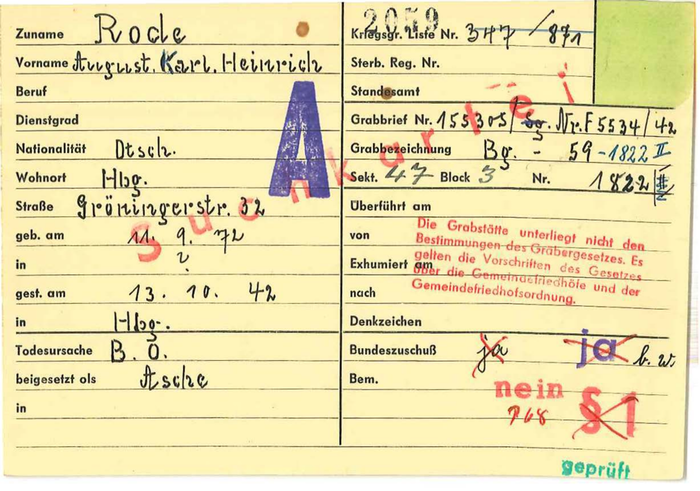 Zuname Rode
Vorname August. Karl. Heinrich
Beruf
Dienstgrad
Nationalität Dtsch.
Wohnort Hbg.
Straße Gröningerstr. 32
geb. am 11. 9. 72
in ?
gest. am 13. 10. 42
in Hbg.
Todesursache B. O.
beigesetzt als Asche
in
A
Suchkartei
2059
Kriegsgr. Liste Nr. 347/871
Sterb. Reg. Nr.
Standesamt
Grabbrief Nr. 155305/ Nr. F 5534/42
Grabbezeichnung Bg. - 59 -1822 II
Sekt. 47 Block 3 Nr. 1822
Überführt am
von
Exhumiert am
nach
Die Grabstätte unterliegt nicht den
Bestimmungen des Gräbergesetzes. Es
gelten die Vorschriften des Gesetzes
über die Gemeindefriedhöfe und der
Gemeindefriedhofsordnung.
Denkzeichen
Bundeszuschuß ja ja b. w.
Bem.
nein
§ 1
geprüft